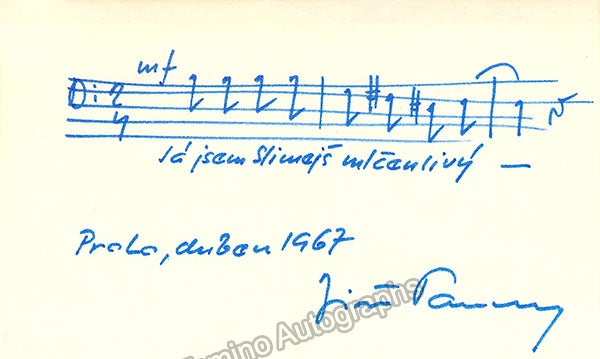 mf
2
4
Já jsem šlimejš mlčenlivý —
Praha, duben 1967
Jiří Pauer
Tamino Autographs